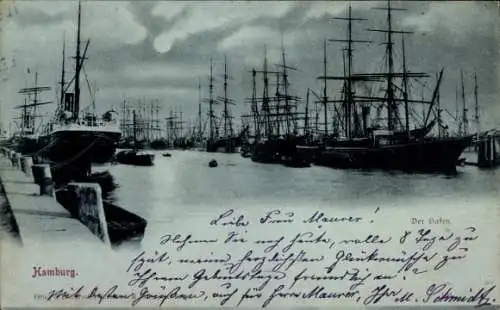 Liebe Frau Maurer!
Der Hafen.
Nehmen Sie von mir heute, volle 8 Tage zu
spät, meine herzlichsten Glückwünsche zu
Hamburg.
Ihrem Geburtstage freundlich an!
Mit besten Grüßen, auch für Herrn Maurer, Ihr M. Schmidt.